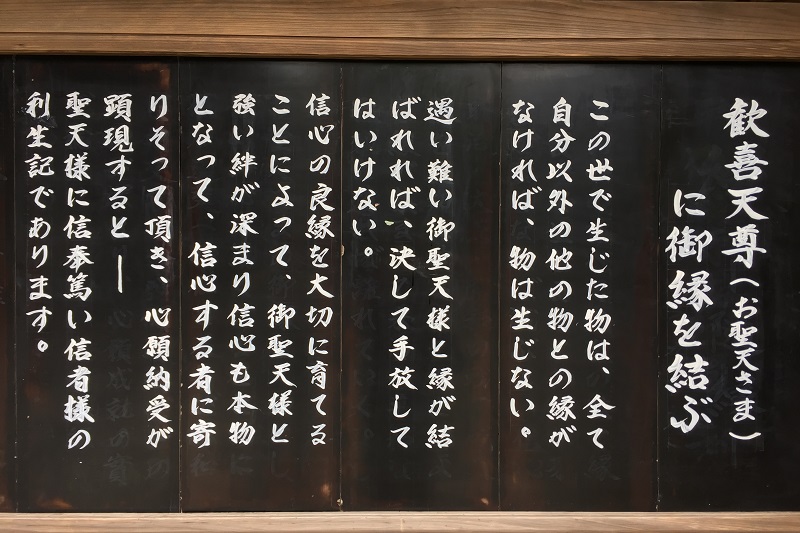 歓喜天尊（お聖天さま）
に御縁を結ぶ
この世で生じた物は、全て
自分以外の他の物との縁が
なければ、物は生じない。
遇い難い御聖天様と縁が結
ばれれば、決して手放して
はいけない。
信心の良縁を大切に育てる
ことによって、御聖天様と
強い絆が深まり信心も本物
となって、信心する者に寄
りそって頂き、心願納受が
顕現すると―
聖天様に信奉篤い信者様の
利生記であります。